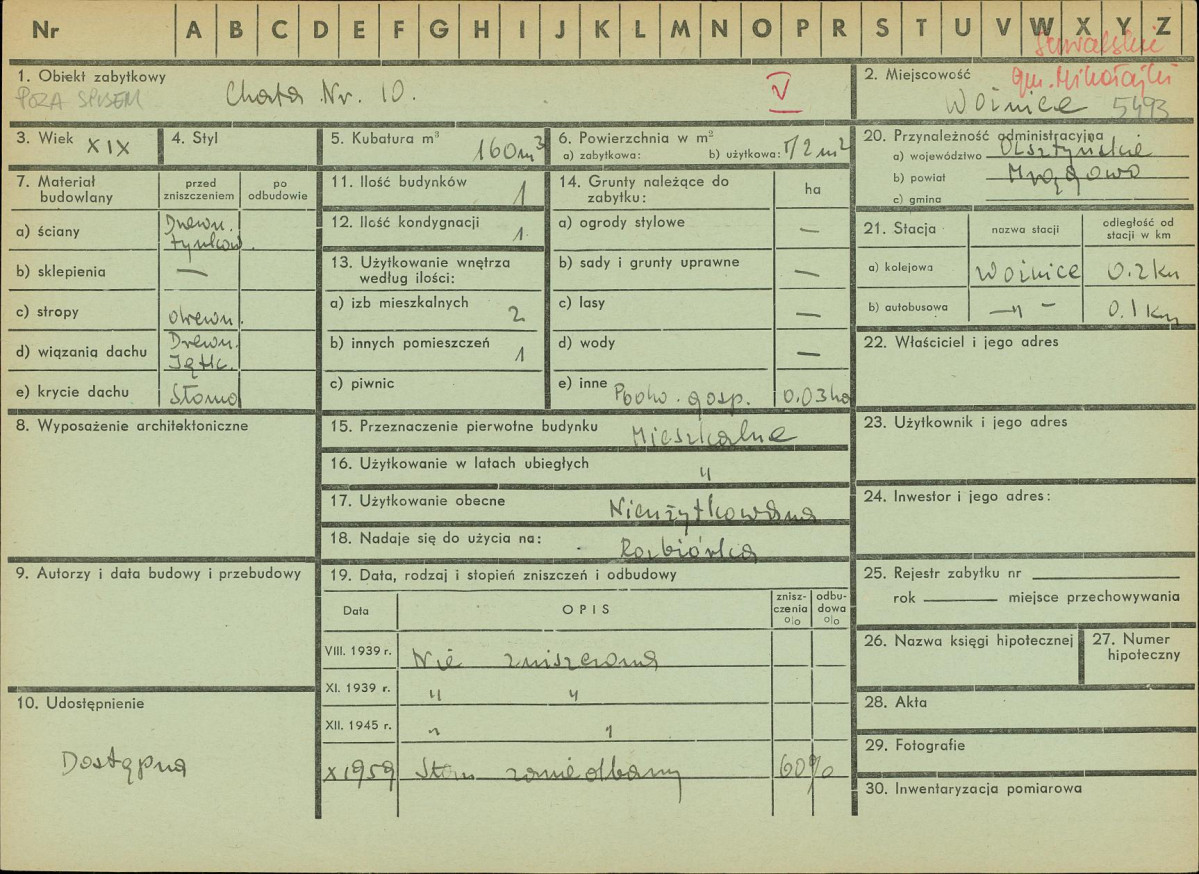 Nr A B C D E F G H I J K L M N O P R S T U V W X Y Z
Suwalskie
gm. Mikołajki
1. Obiekt zabytkowy
POZA SPISEM
Chata Nr. 10.
V
2. Miejscowość
Woźnice 5493
3. Wiek XIX
4. Styl
5. Kubatura m³
160 m³
6. Powierzchnia w m²
a) zabytkowa: b) użytkowa:
20. Przynależność administracyjna
a) województwo Olsztyńskie
b) powiat Mrągowo
c) gmina
7. Materiał budowlany
przed zniszczeniem
po odbudowie
a) ściany
Drewn.
tynkow.
b) sklepienia —
c) stropy drewn.
d) wiązania dachu
Drewn.
Jętk.
e) krycie dachu Słoma
11. Ilość budynków 1
12. Ilość kondygnacji 1
13. Użytkowanie wnętrza
według ilości:
a) izb mieszkalnych 2
b) innych pomieszczeń 1
c) piwnic
14. Grunty należące do
zabytku:
ha
a) ogrody stylowe —
b) sady i grunty uprawne —
c) lasy —
d) wody —
e) inne Podw. gosp. 0.03 ha
21. Stacja
nazwa stacji
odległość od
stacji w km
a) kolejowa Woźnice 0.2 km
b) autobusowa —„— 0.1 km
22. Właściciel i jego adres
8. Wyposażenie architektoniczne
15. Przeznaczenie pierwotne budynku Mieszkalne
16. Użytkowanie w latach ubiegłych „
17. Użytkowanie obecne Nieużytkowana
18. Nadaje się do użycia na: Rozbiórka
23. Użytkownik i jego adres
24. Inwestor i jego adres:
9. Autorzy i data budowy i przebudowy
19. Data, rodzaj i stopień zniszczeń i odbudowy
Data
OPIS
znisz-
czenia
%
odbu-
dowa
%
VIII. 1939 r. Nie zniszczona
XI. 1939 r. „ „
XII. 1945 r. „ „
X 1959 Stan zaniedbany 60%
25. Rejestr zabytku nr
rok miejsce przechowywania
26. Nazwa księgi hipotecznej
27. Numer
hipoteczny
10. Udostępnienie
Dostępna
28. Akta
29. Fotografie
30. Inwentaryzacja pomiarowa